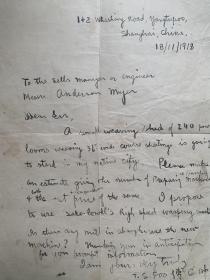 142 Whashing Road, Yangtszpoo,
Shanghai, China.
18/11/1918
To the Sells manager or engineer
Messrs Anderson Myer
Dear Sir,
A small weaving shed of 240 power
looms weaving 36 inch course sheetings is going
to start in my native city. Please make
an estimate giving the number of Preparing machines
& the net price of the same. I propose
to use High Speed warping
Is there any mill in shanghai use the new
machine? Thanking you in anticipation
for your prompt information.
I am yours very truly